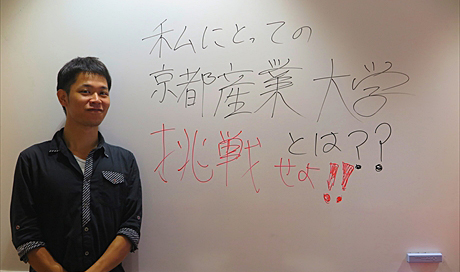 私にとっての
京都産業大学
とは??
挑戦せよ!!